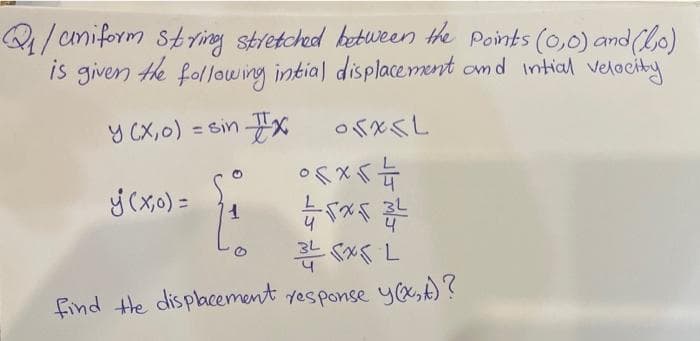 Q1/ uniform string stretched between the Points (0,0) and (l,0)
is given the following intial displacement and intial velocity
y (x,0) = sin π/L x    0≤x≤L
ẏ(x,0) = { 0    0≤x≤ L/4
1    L/4 ≤x≤ 3L/4
0    3L/4 ≤x≤ L
find the displacement response y(x,t)?